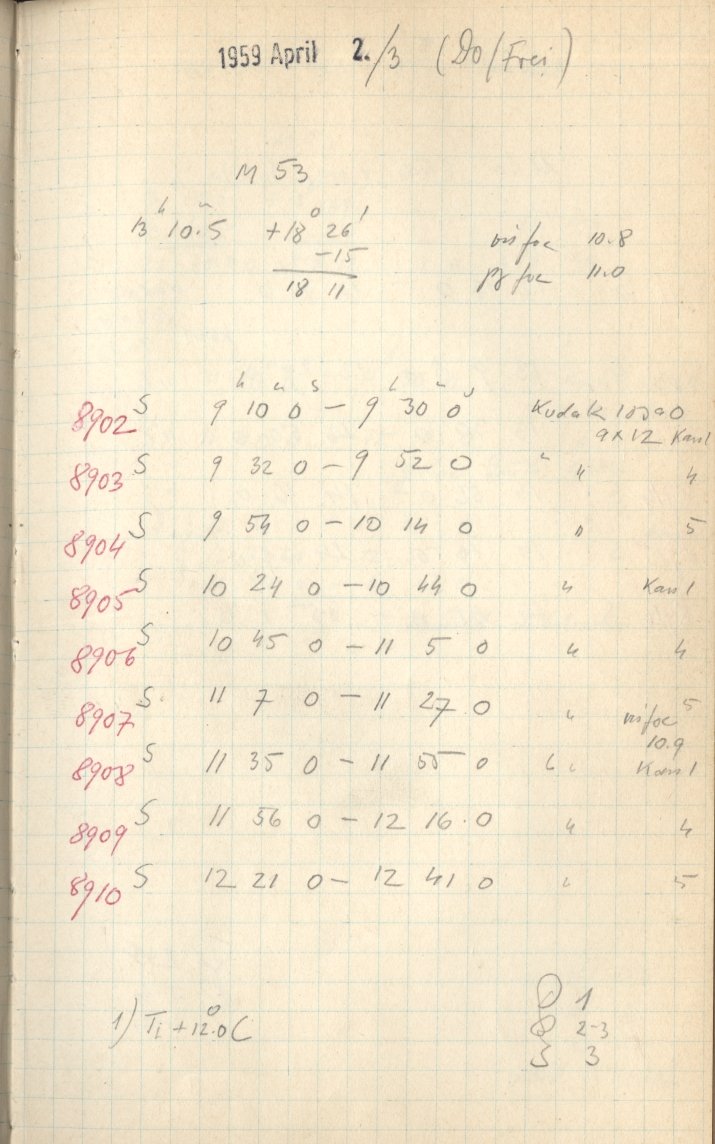 1959 April 2./3 (Do/Frei)
M 53
13ʰ 10.ᵐ5 +18° 26'
-15
18 11
vis foc 10.8
pg foc 11.0
8902 S 9ʰ 10ᵐ 0ˢ – 9ʰ 30ᵐ 0ˢ Kodak 103aO
9x12 Kass 1
8903 S 9 32 0 – 9 52 0 " " 4
8904 S 9 54 0 – 10 14 0 " 5
8905 S 10 24 0 – 10 44 0 " Kass 1
8906 S 10 45 0 – 11 5 0 " 4
8907 S 11 7 0 – 11 27 0 " 5
vis foc
10.9
8908 S 11 35 0 – 11 55 0 " Kass 1
8909 S 11 56 0 – 12 16 0 " 4
8910 S 12 21 0 – 12 41 0 " 5
1) Ti +12.°0 C
D 1
2-3
S 3